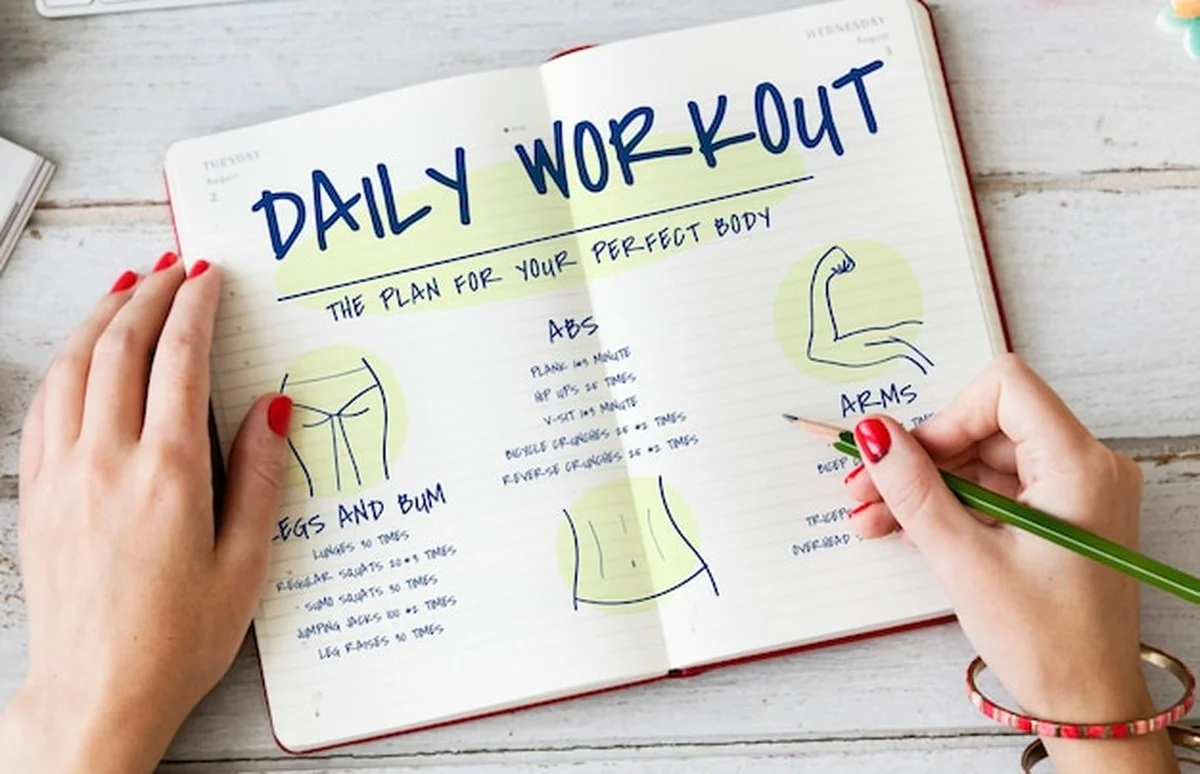 TUESDAY
August
2
WEDNESDAY
August
3
DAILY WORKOUT
THE PLAN FOR YOUR PERFECT BODY
LEGS AND BUM
LUNGES 30 TIMES
REGULAR SQUATS 20*3 TIMES
SUMO SQUATS 30 TIMES
JUMPING JACKS 100 *2 TIMES
LEG RAISES 30 TIMES
ABS
PLANK 1*3 MINUTE
HIP UPS 25 TIMES
V-SIT 1*3 MINUTE
BICYCLE CRUNCHES 25 *2 TIMES
REVERSE CRUNCHES 25 *2 TIMES
ARMS
TIMES
BICEP
TRICEPS
OVERHEAD